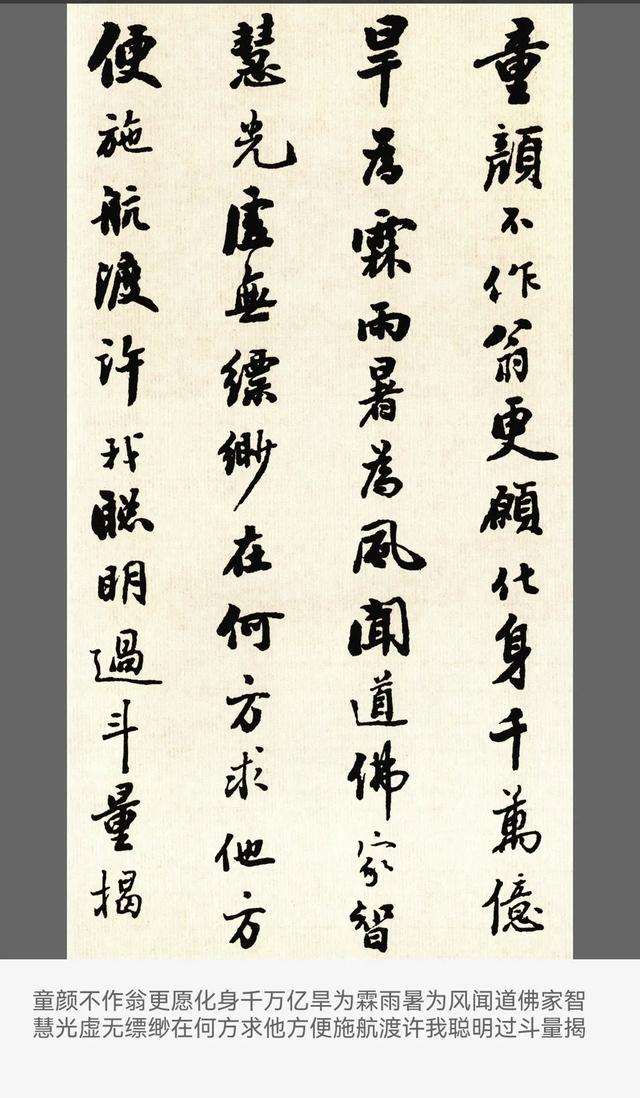 童顏不作翁更願化身千萬億
旱為霖雨暑為風聞道佛家智
慧光虛無縹緲在何方求他方
便施航渡許我聰明過斗量揭
童颜不作翁更愿化身千万亿旱为霖雨暑为风闻道佛家智
慧光虚无缥缈在何方求他方便施航渡许我聪明过斗量揭